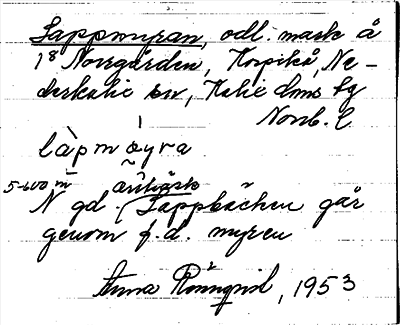 Lappmyran, odl. mark å
1⁸ Norrgården, Korpikå, Ne-
derkalix sn, Kalix dms tg
Norrb. l.
làpm yra
5-600 m
N gd. Lappbäcken går
genom f.d. myren
Anna Rönnqvist, 1953